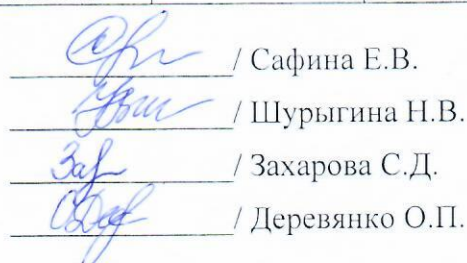 / Сафина Е.В.
/ Шурыгина Н.В.
/ Захарова С.Д.
/ Деревянко О.П.